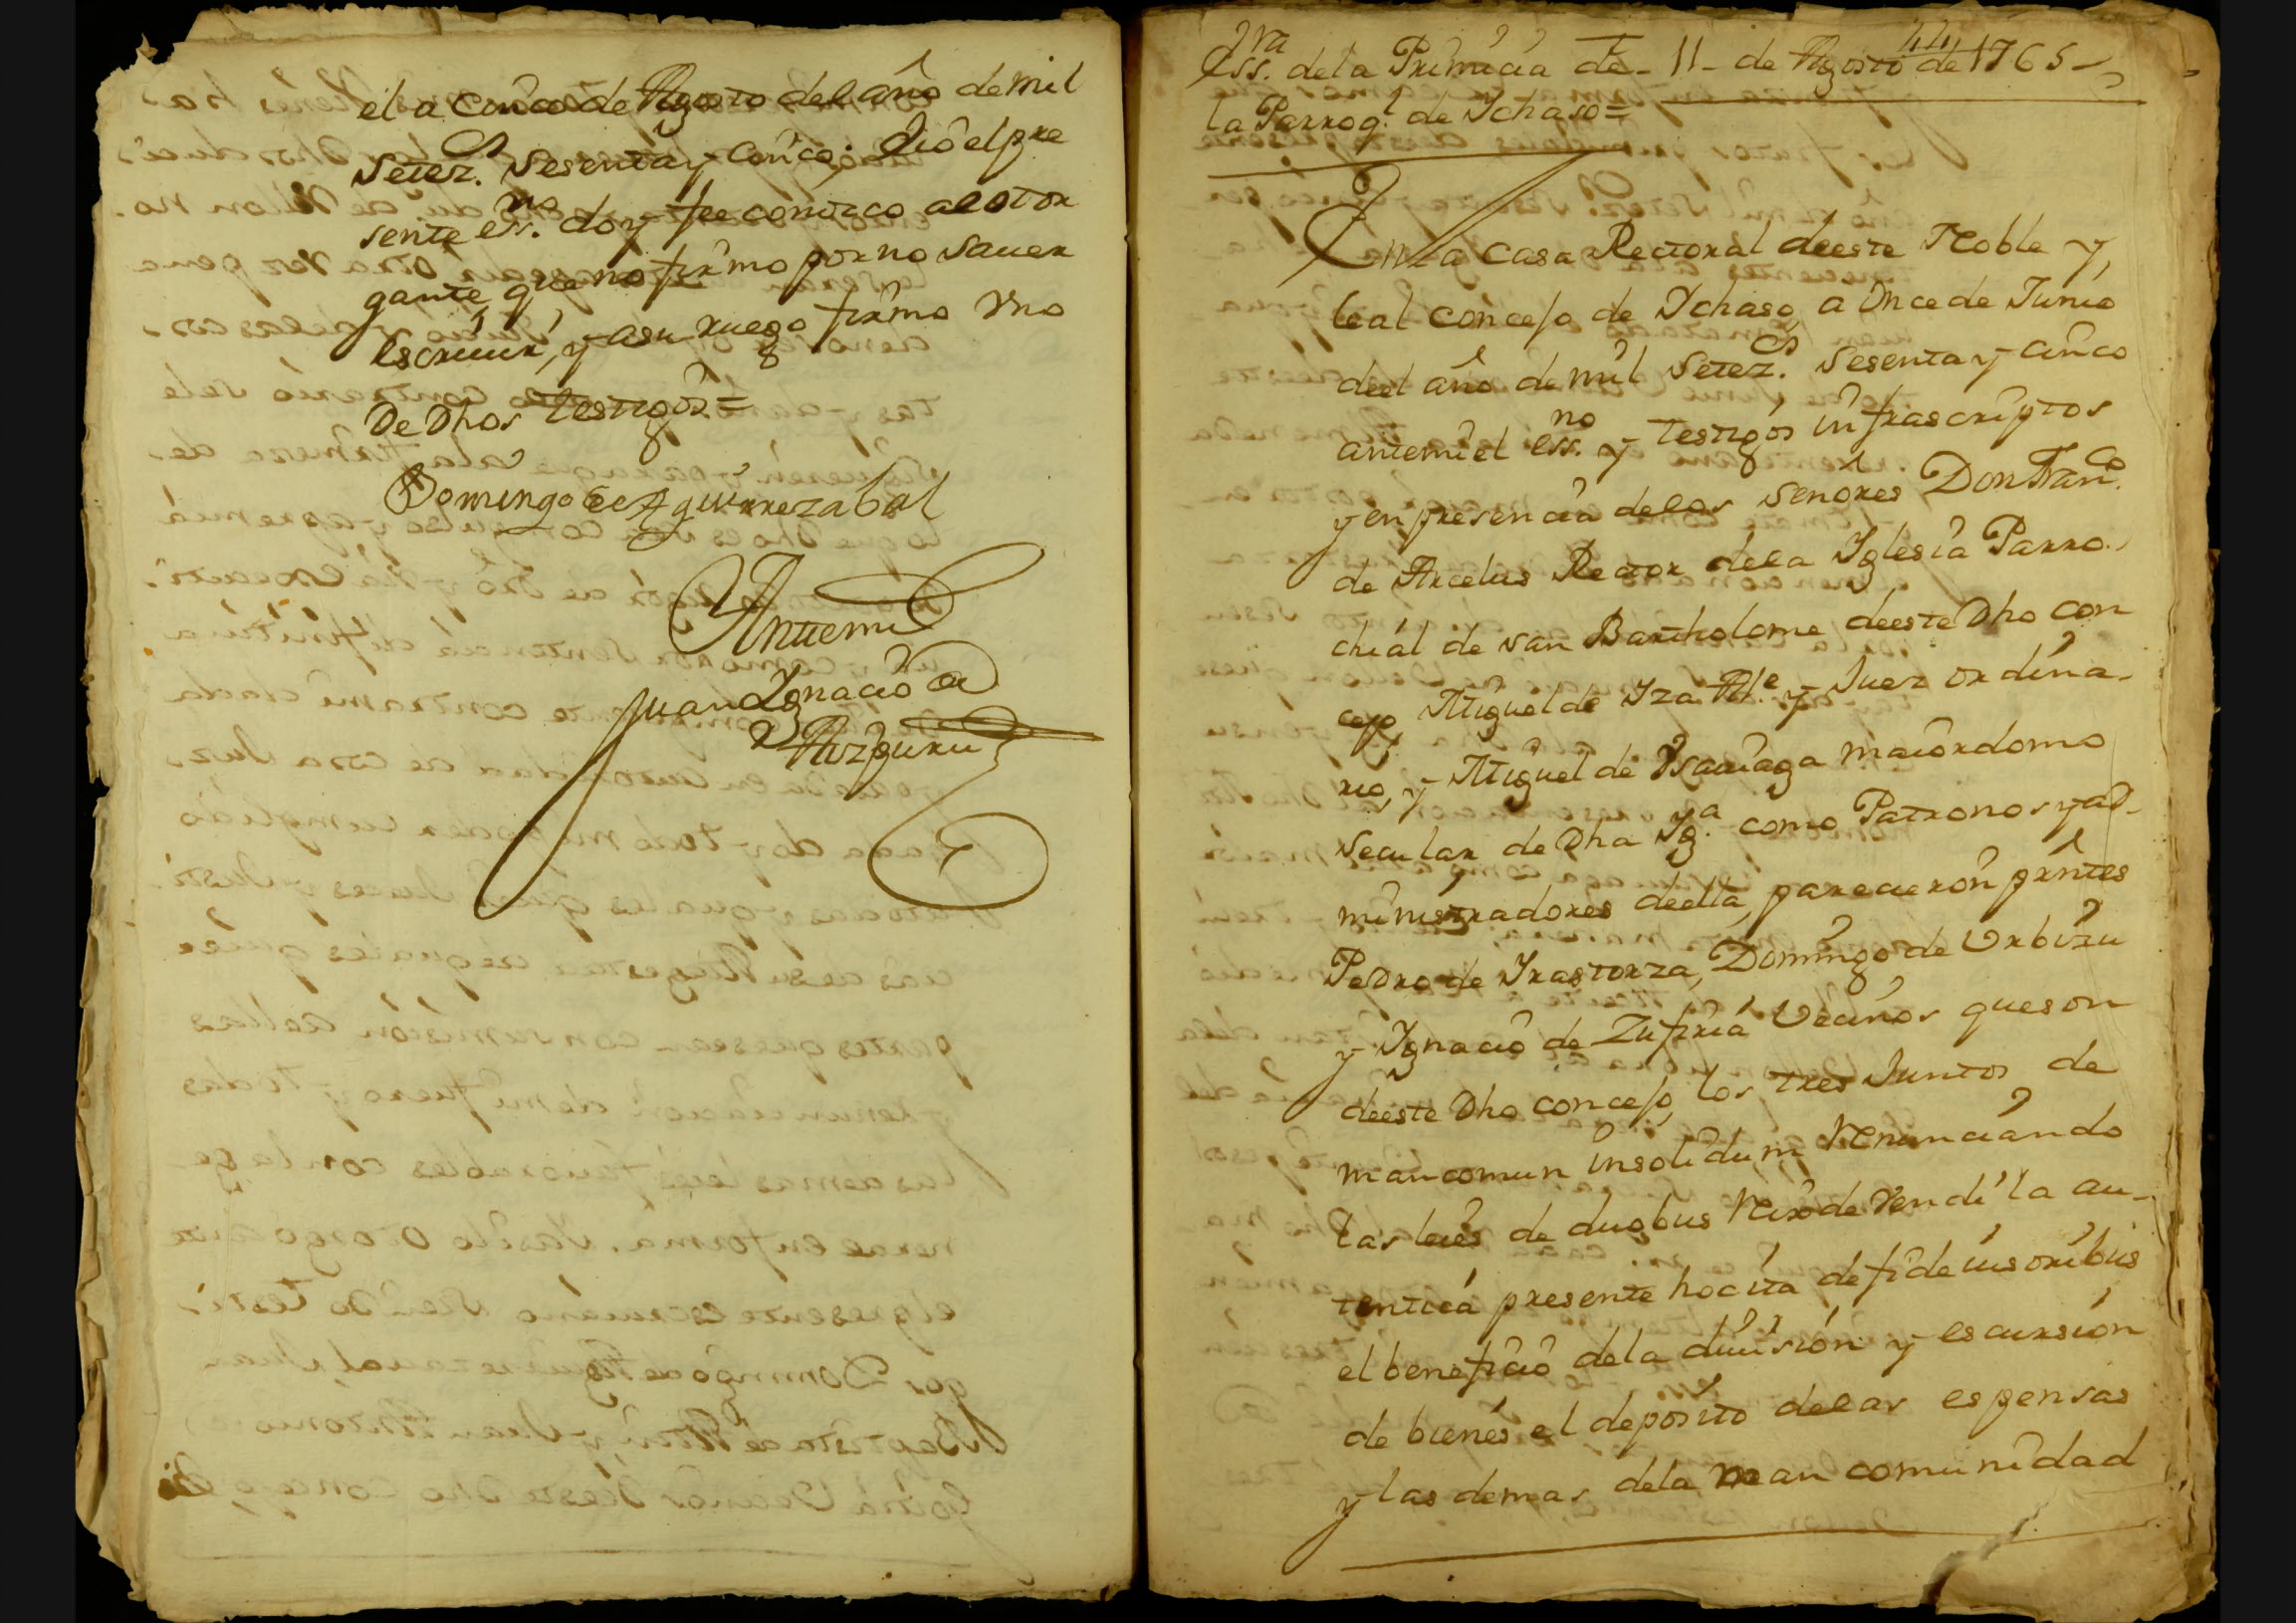 el a cinco de Agosto del año de mil
Setez.os Sesenta y cinco: Yo el pre
sente ess.no doy fee conozco al otor
gante que no firmo por no Saver
escriuir, y a su ruego firmo Vno
de Dhos testigos=
Domingo de Aguirrezabal
Antemi
Juan Ignacio de
Aizpuru
Ess.ra de la Primicia de 11 de Agosto de 1765
la Parrog.l de Ichaso=
En la Casa Rectoral deeste Noble y
leal concejo de Ychaso, a Once de Junio
deel año de mil Setez.os Sesenta y cinco
antemi el ess.no y testigos infrascriptos
y en presencia de los Señores Don Fran.co
de Arcelus Rector de la Yglesia Parro
chial de san Bartholome deeste Dho con
cejo, Miguel de Yza Al.e y Juez ordina-
rio, y Miguel de Ysauiaga maiordomo
secular de Dha Yg.a como Patronos y ad-
ministradores deella, parecieron prntes
Pedro de Yrastorza, Domingo de Urbizu
y Ygnacio de Zufiria Vecinos que son
deeste Dho concejo, los tres Juntos de
mancomun insolidum Renunciando
las leies de duobus Reix de Vendi la au-
tentica presente hocita de fide iusoribus
el beneficio de la diuision y escursion
de bienes el deposito de las espensas
y las demas de la mancomunidad